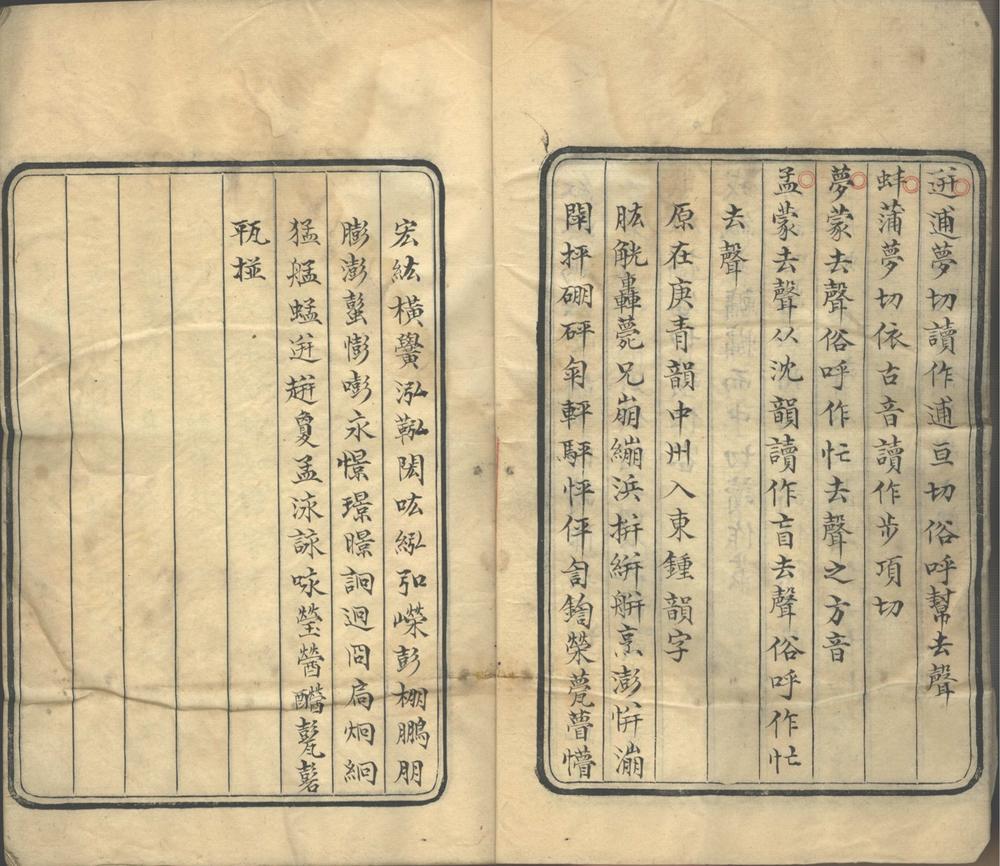 迸逋夢切讀作逋亘切俗呼幫去聲
蚌蒲夢切依古音讀作步項切
夢蒙去聲俗呼作忙去聲之方音
孟蒙去聲从沈韻讀作盲去聲俗呼作忙
去聲
原在庚青韻中州入東鍾韻字
肱觥轟薨兄崩繃浜拼絣艵烹澎恲漰
閛抨硼砰匉軯駍怦伻訇鍧榮甍瞢懵
宏紘橫黌泓鞃閎吰紭弘嶸彭棚鵬朋
膨澎蟚憉嘭永憬璟暻詗迥冏扃炯絅
猛艋蜢迸趟敻孟泳詠咏瑩醟甏
瓶掽